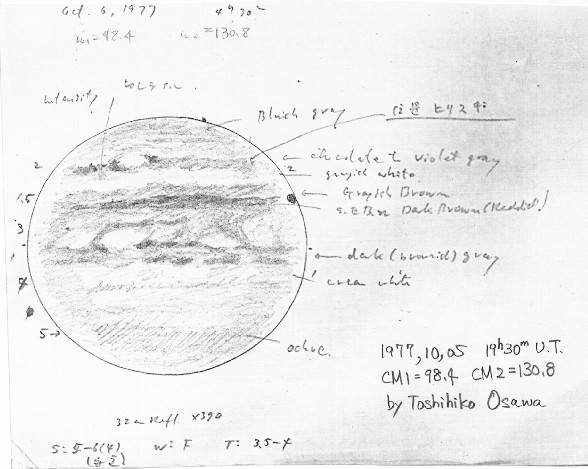 Oct. 6, 1977 4h 30m
ω1=98.4 ω2=130.8
Intensity
Bluish gray
注意
2
chocolate violet gray
2
grayish white
1.5
Grayish Brown
Dark Brown (Reddish)
3
1
dark (brownish) gray
1
cream white
4
5→
ochre.
1977,10,05 19h30m U.T.
CM1=98.4 CM2=130.8
by Toshihiko Osawa
32cm Refl. ×390
S: 5-6(4) W: F T: 3.5-4